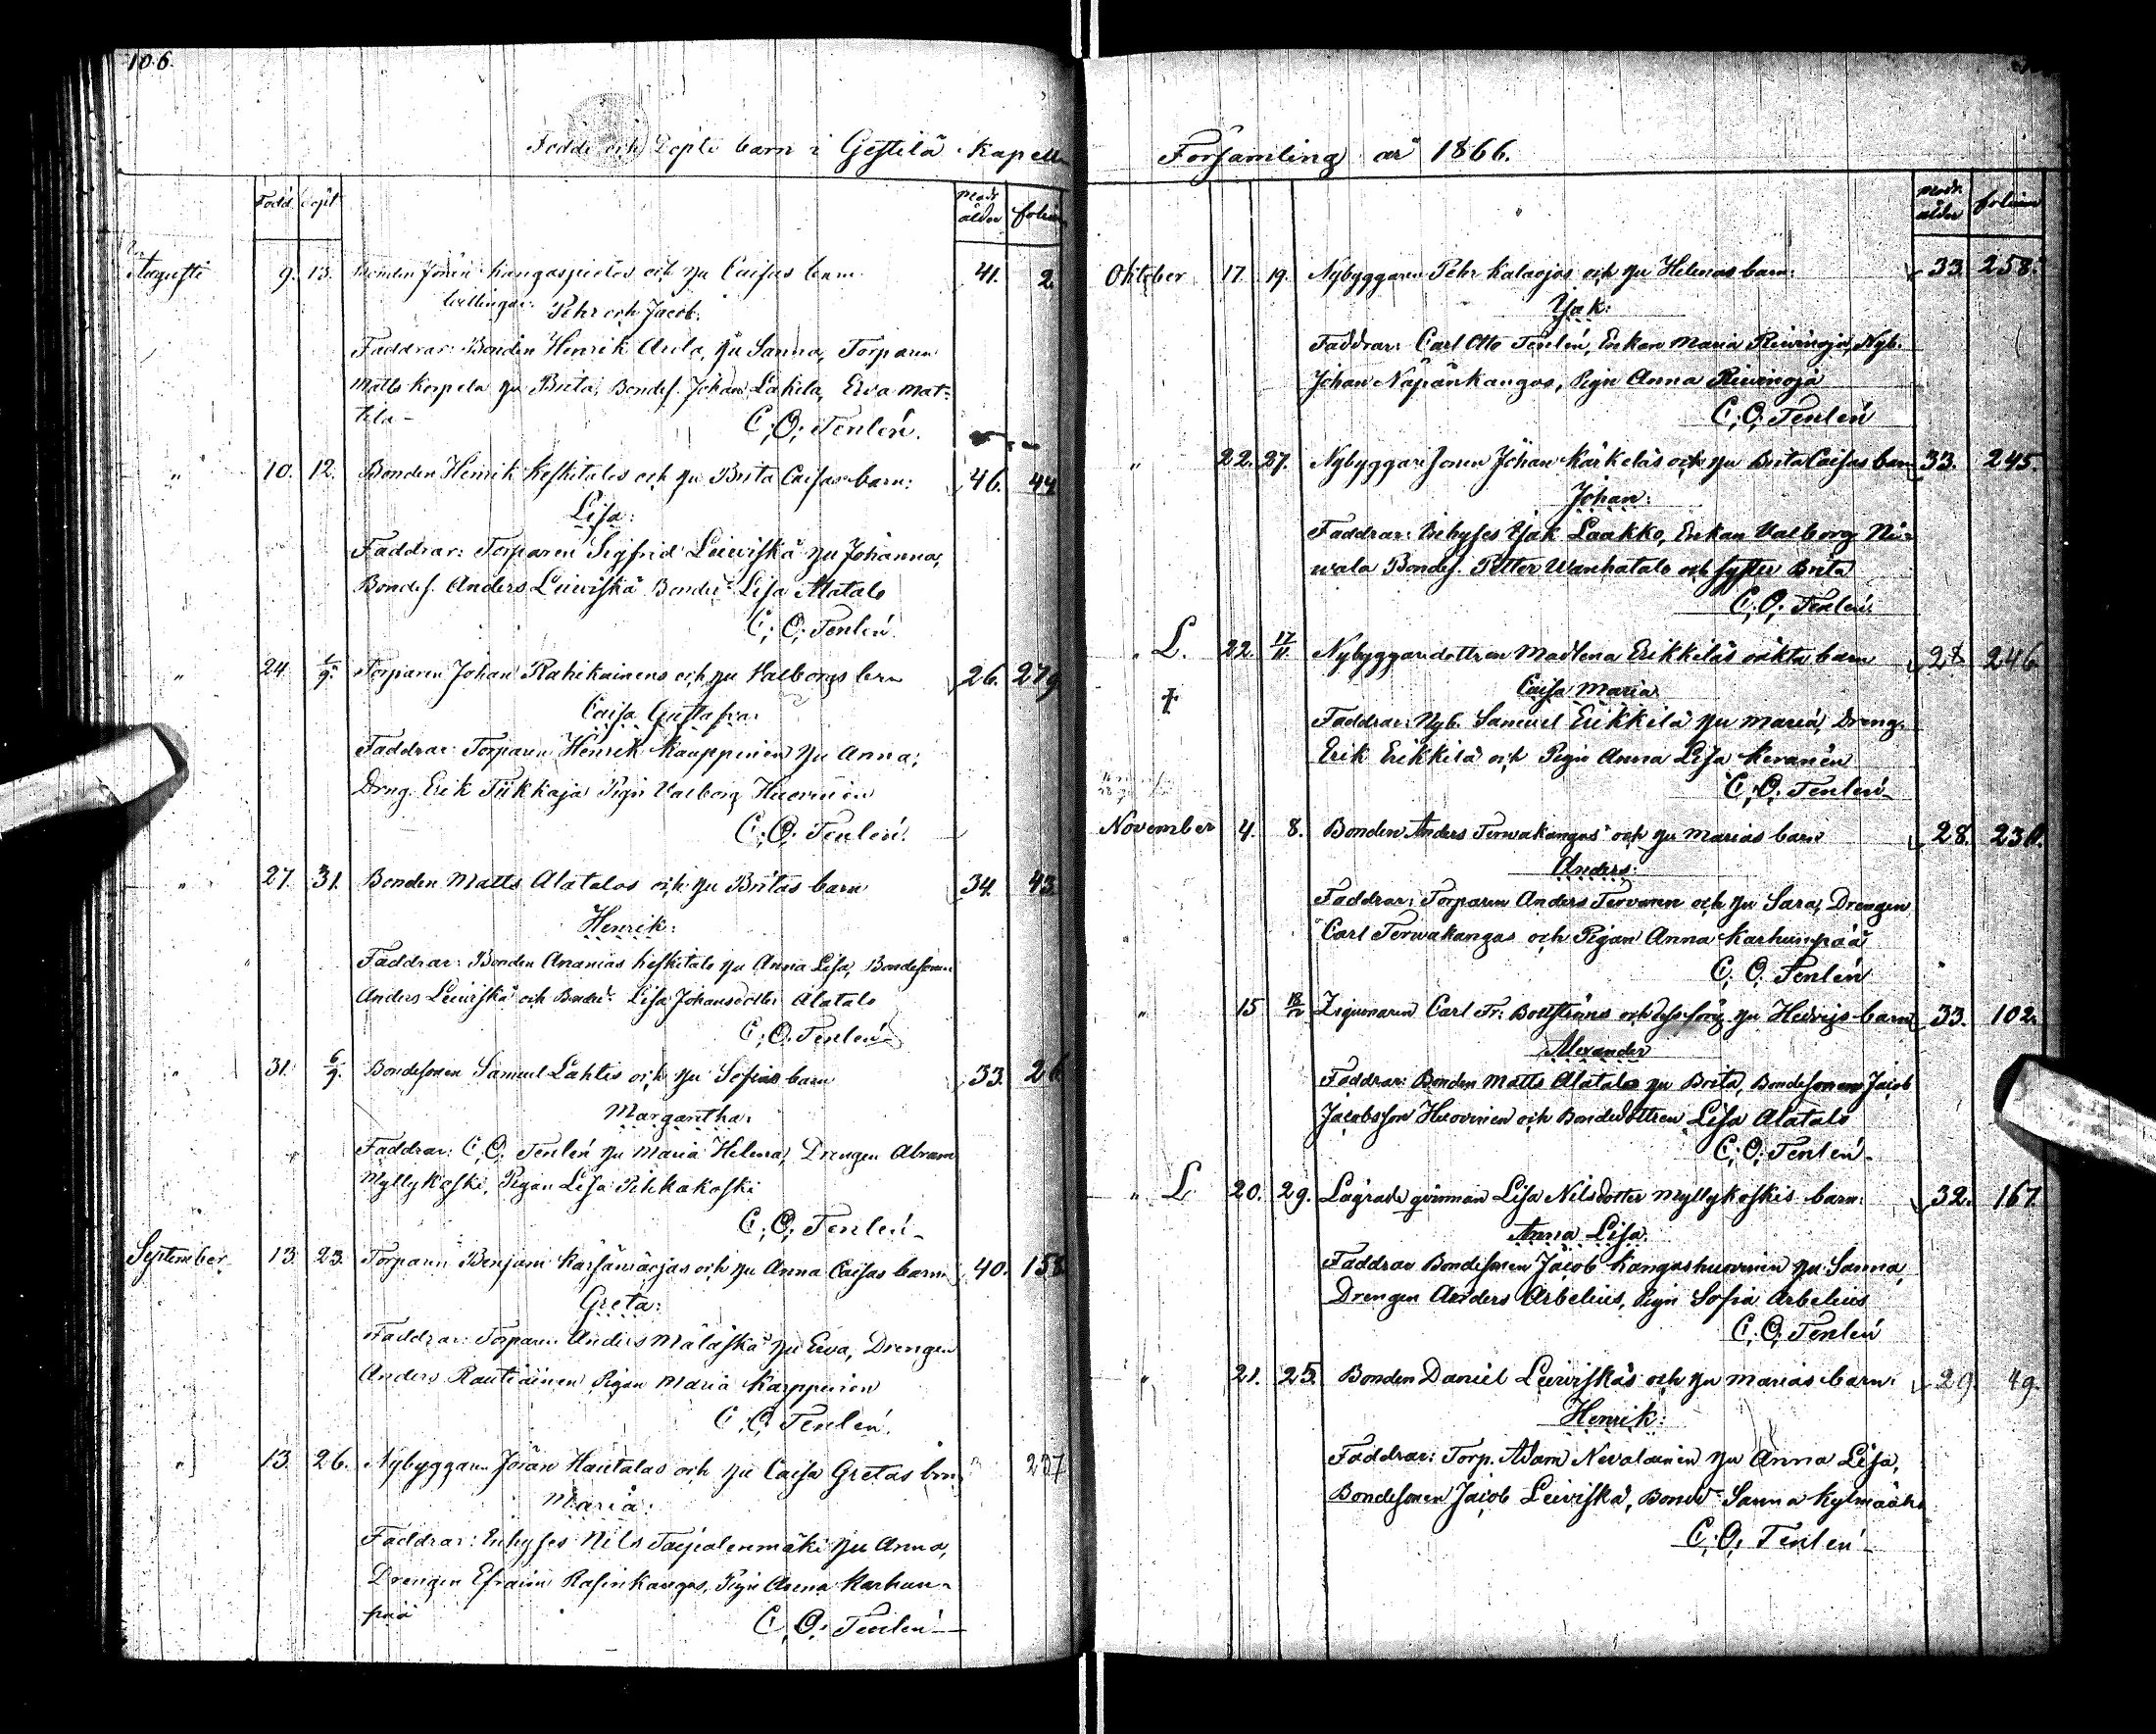 106.
Födde och Döpte barn i Gestilä Kapell
Född döpt modr ålder folium
Augusti 9. 13. Bonden Jöran Kangaspietos och hu Caisas barn 41. 2.
tvillingar: Pehr och Jacob.
Faddrar: Bonden Henrik Aula, hu Sanna, Torparen
Matts Korpela hu Brita, Bondes. Johan Lakela, Eva Mat-
tila
C; O; Tenlén.
" 10. 12. Bonden Henrik Keskitalos och hu Brita Caisas barn: 46. 44
Lisa:
Faddrar: Torparen Sigfrid Leiviskä hu Johanna,
Bondes. Anders Leiviskä Bonded. Lisa Alatalo
C; O; Tenlén
" 24. 1/9. Torparen Johan Rahikainens och hu Valborgs brn 26. 279
Caisa Gustafva:
Faddrar: Torparen Henrik Kauppinen hu Anna;
Dreng. Erik Tiikkaja Pign Valborg Huovinen
C; O; Tenlén.
" 27. 31. Bonden Matts Alatalos och hu Britas barn 34. 43
Henrik:
Faddrar: Bonden Ananias Keskitalo hu Anna Lisa, Bondesonen
Anders Leiviskä och Bonded. Lisa Johansdotter Alatalo
C; O. Tenlén
" 31. 6/9. Bondesonen Samuel Lahtis och hu Sofias barn 33. 26
Margaretha:
Faddrar: C; O. Tenlén hu Maria Helena, Drengen Abram
Myllykoski, Pigan Lisa Pihkakoski
C; O; Tenlén
September 13. 23. Torparen Benjam Karsänräojas och hu Anna Caisas barn 40. 158
Greta:
Faddrar: Torparen Anders Mäläskä hu Eva, Drengen
Anders Rautiainen Pigan Maria Karppinen
C; O; Tenlén.
" 13. 26. Nybyggaren Jöran Hautalas och hu Caisa Gretas brn 237
Maria:
Faddrar: Inhyses Nils Taipalenmäki hu Anna,
Drengen Efraim Rasinkangas, Pign Anna Karhun-
pää
C; O; Tenlén
Församling år 1866.
modr ålder folium
Oktober 17. 19. Nybyggaren Pehr Kalaojas och hu Helenas barn: 33. 258.
Isak:
Faddrar: Carl Otto Tenlén, Enkan Maria Reivinoja, Nyb.
Johan Näpänkangas, Pign Anna Reivinoja
C; O; Tenlén
" 22. 27. Nybyggaresonen Johan Kärkeläs och hu Brita Caisas barn 33. 245.
Johan:
Faddrar: Inhyses Isak Laakko, Enkan Valborg Ni-
wala Bondes. Petter Wanhatalo och syster Brita
C; O; Tenlén.
" L. 22. 17/11 Nybyggaredottren Madlena Erikkiläs oäkta barn 28. 246.
Caisa Maria
Faddrar: Nyb. Samuel Erikkilä hu Maria, Dreng.
Erik Erikkilä och Pign Anna Lisa Keränen
C; O; Tenlén
November 4. 8. Bonden Anders Terwakangas och hu Marias barn 28. 230.
Anders:
Faddrar: Torparen Anders Tervonen och hu Sara, Drengen
Carl Terwakangas och Pigan Anna Karhunpää
C; O; Tenlén
" 15 18/12 Zigenaren Carl Fr: och hu Hedvigs barn 33. 102.
Alexander
Faddrar: Bonden Matts Alatalo hu Brita, Bondesonen Jacob
Jacobsson Huovinen och Bondedottren Lisa Alatalo
C; O; Tenlén
" L 20. 29. Lägrade qvinnan Lisa Nilsdotter Myllykoskis barn: 32. 167.
Anna Lisa
Faddrar Bondesonen Jacob Kangashuovinen hu Sanna,
Drengen Anders Arbelius, Pign Sofia Arbelius
C; O; Tenlén
" 21. 25. Bonden Daniel Leiviskäs och hu Marias barn: 29. 49.
Henrik:
Faddrar: Torp. Adam Nevalainen hu Anna Lisa,
Bondesonen Jacob Leiviskä, Bonded. Sanna Kylmäaho
C; O; Tenlén